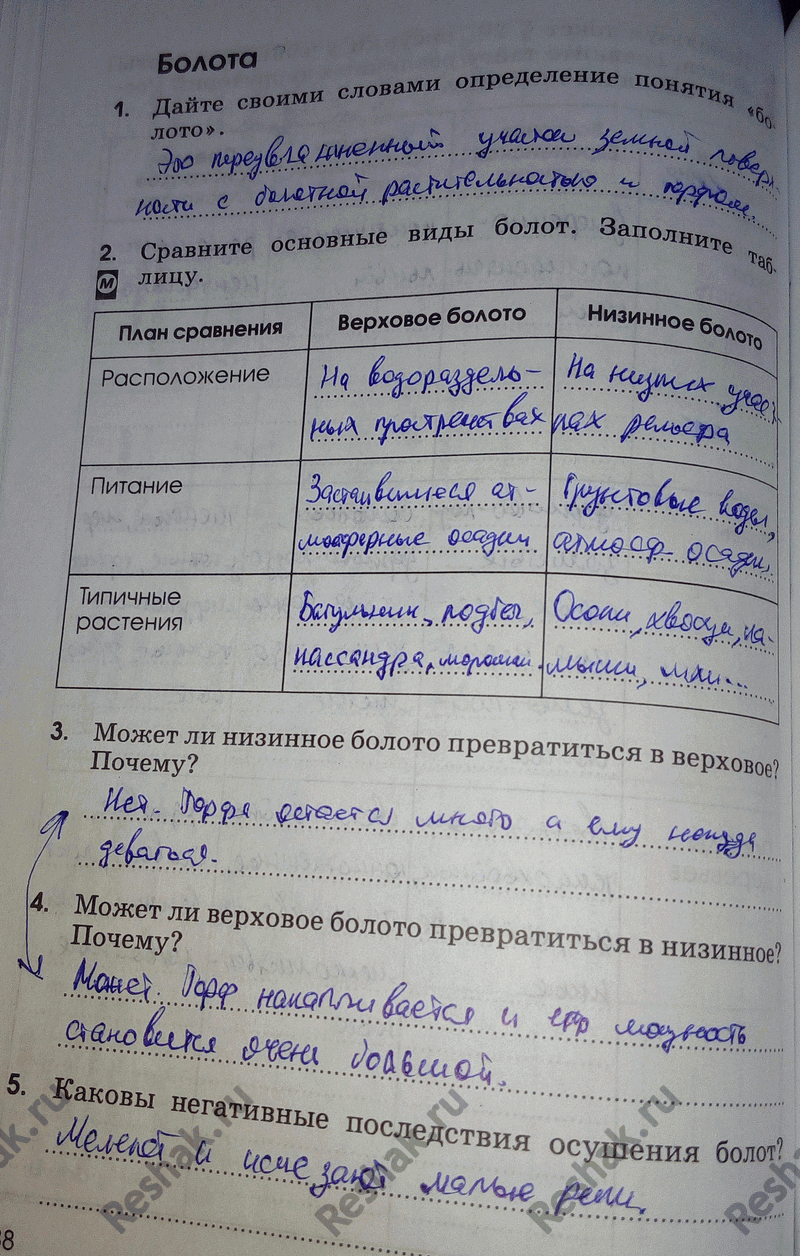 Болота
1. Дайте своими словами определение понятия «бо-
лото».
Это переувлажненный участок земной поверх
ности с болотной растительностью и торфом.
2. Сравните основные виды болот. Заполните таб-
М лицу.
План сравнения Верховое болото Низинное болото
Расположение На водораздель- На низких участ
ных пространствах ках рельефа
Питание Застоявшиеся ат- Грунтовые воды,
мосферные осадки атмосф осадки,
Типичные Багульник, подбел, Осоки, хвощи, ка-
растения кассандра, морошка. мыши, мхи...
3. Может ли низинное болото превратиться в верховое?
Почему?
Нет. Торфа остается много а ему некуда
деваться.
4. Может ли верховое болото превратиться в низинное?
Почему?
Может. Торф накапливается и его мощность
становится очень большой.
5. Каковы негативные последствия осушения болот?
Мелеют и исчезают малые реки.
Reshak.ru Reshak.ru Reshak.ru
8